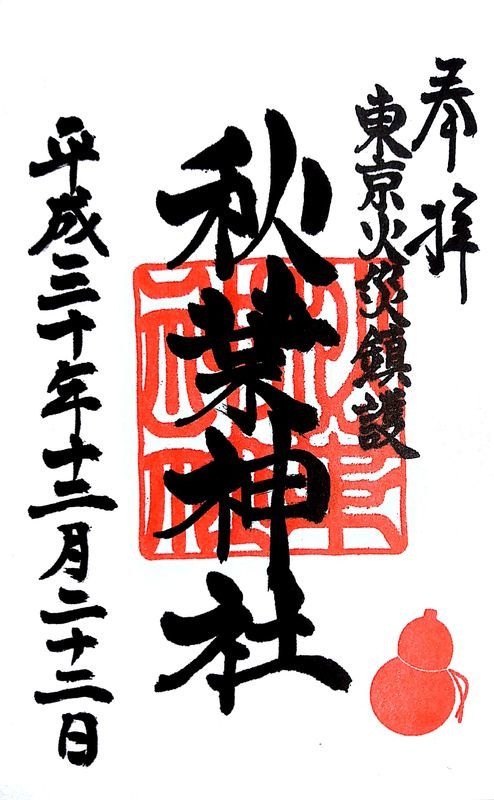 奉拝
東京火災鎮護
秋葉神社
平成三十年十二月二十二日